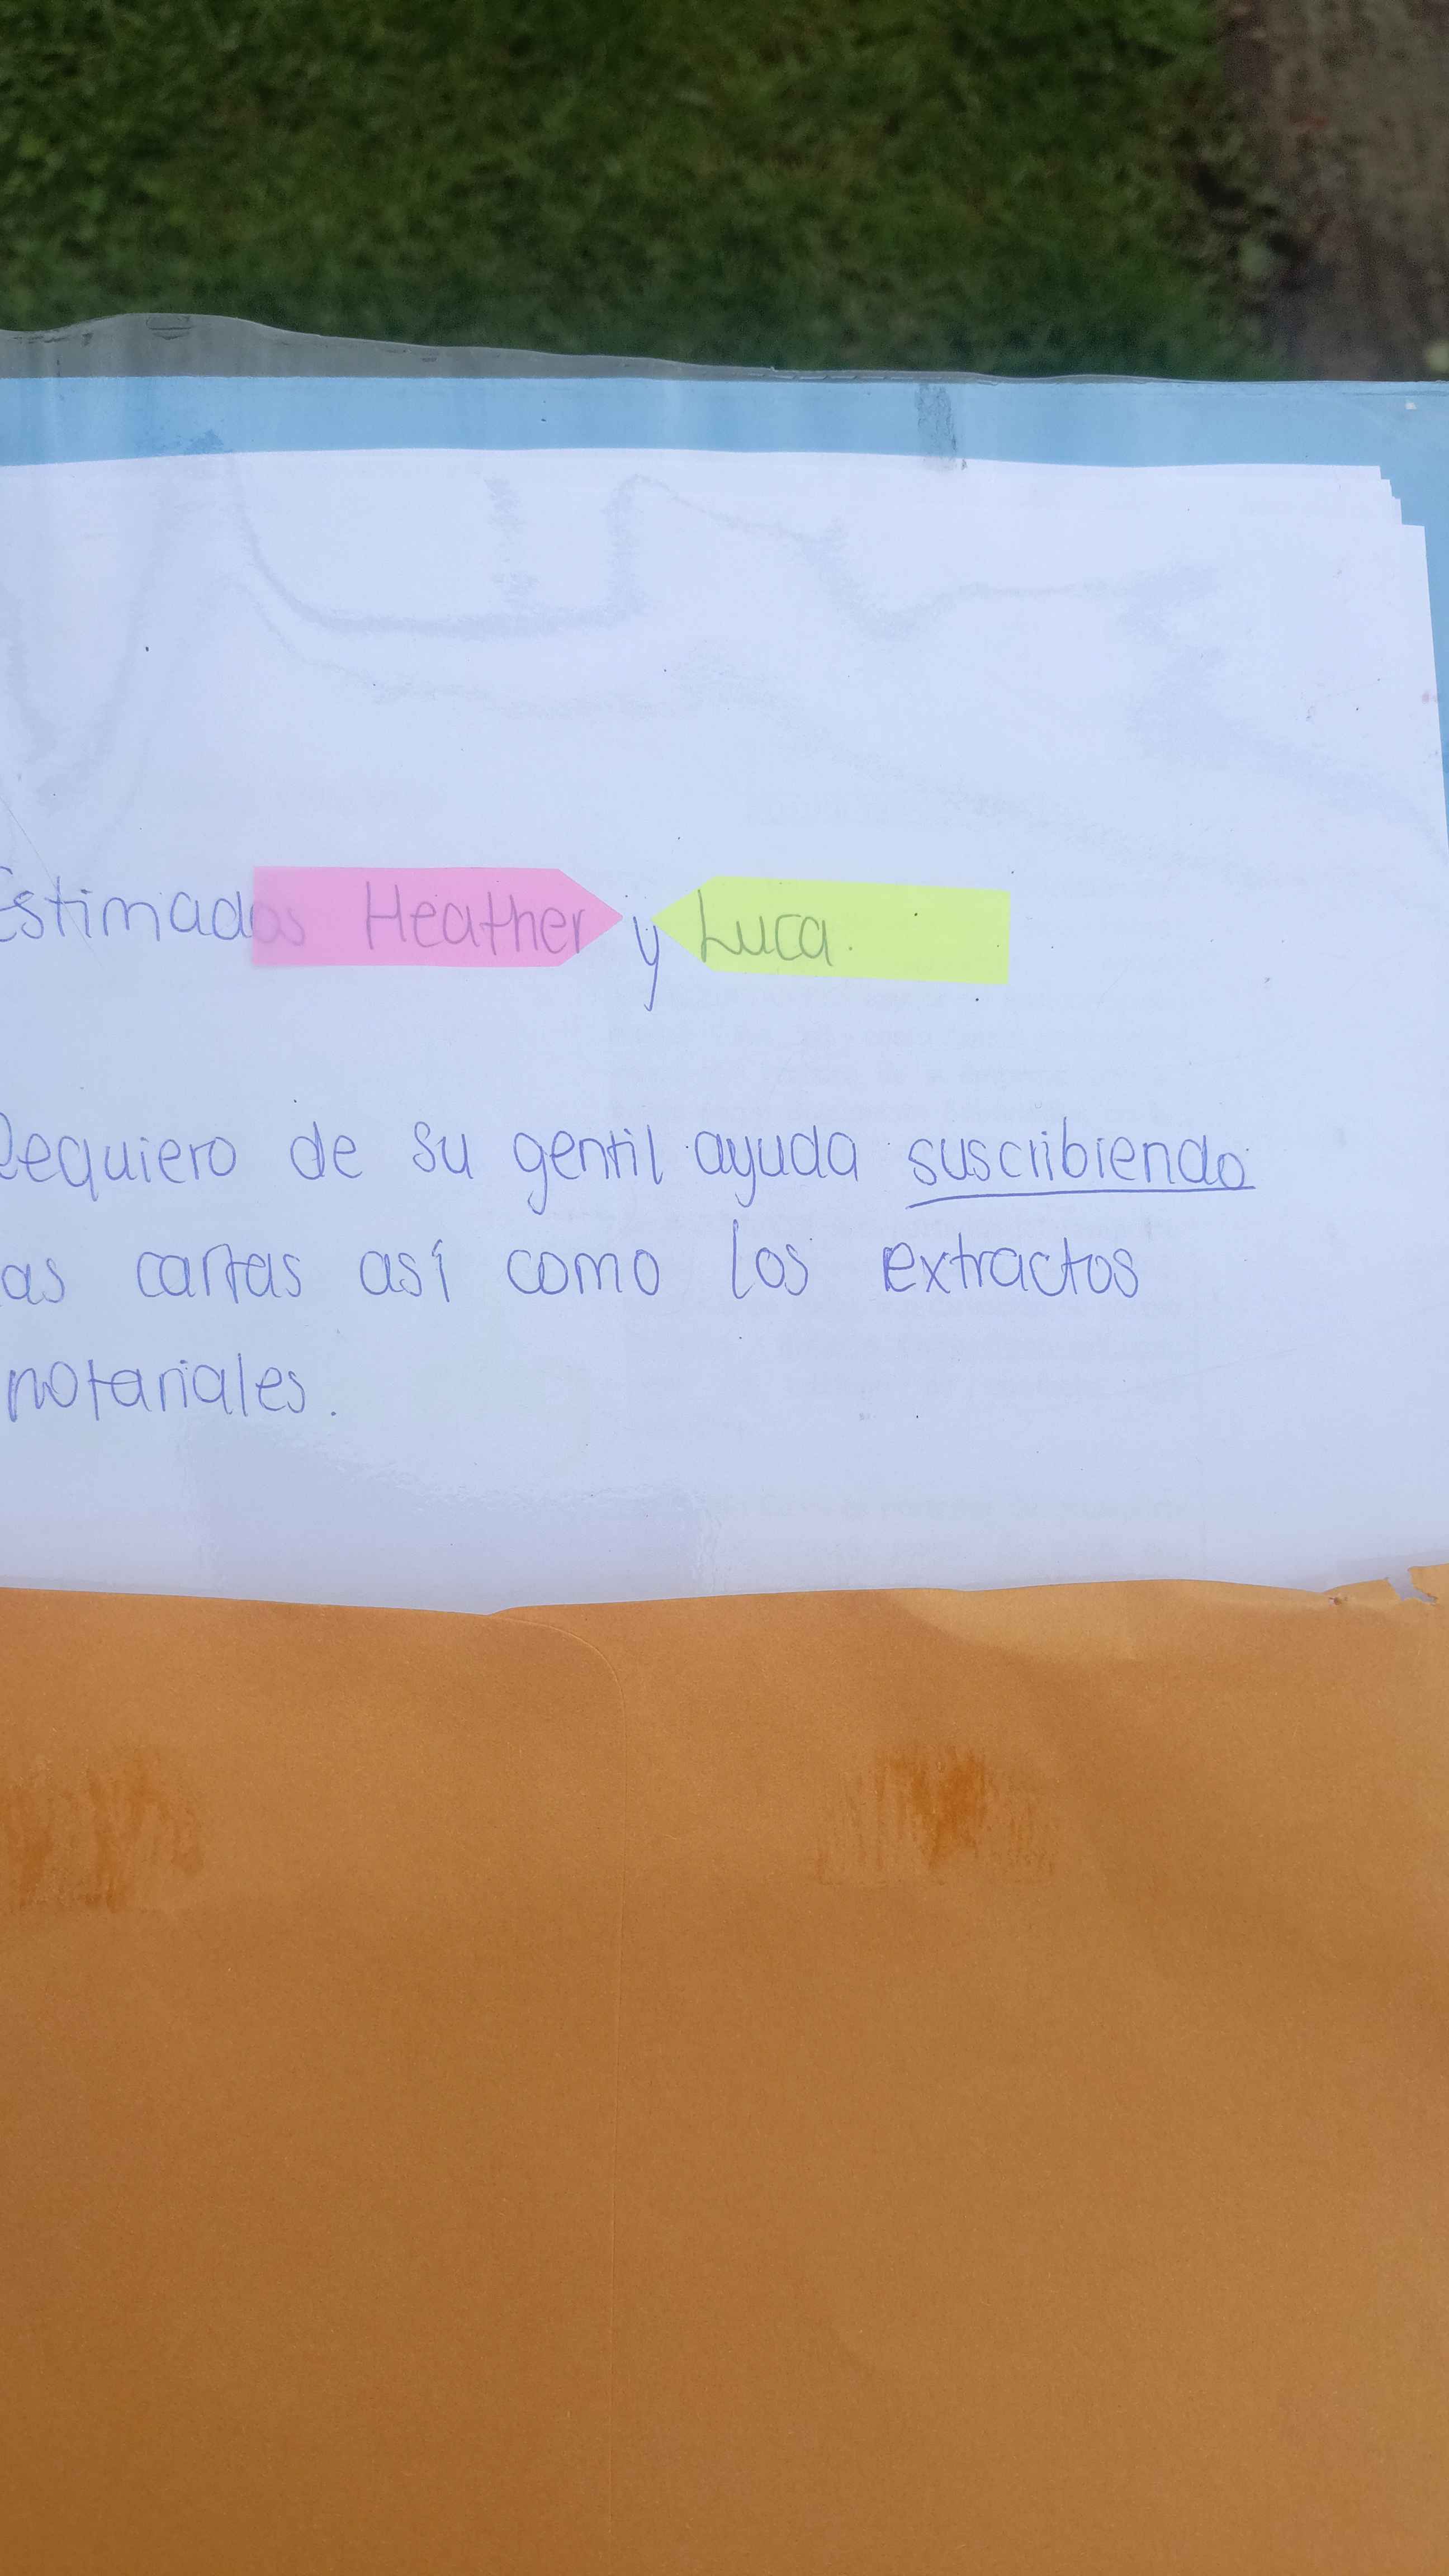 Estimados Heather y Luca.
Requiero de su gentil ayuda suscribiendo
as cartas así como los extractos
notariales.